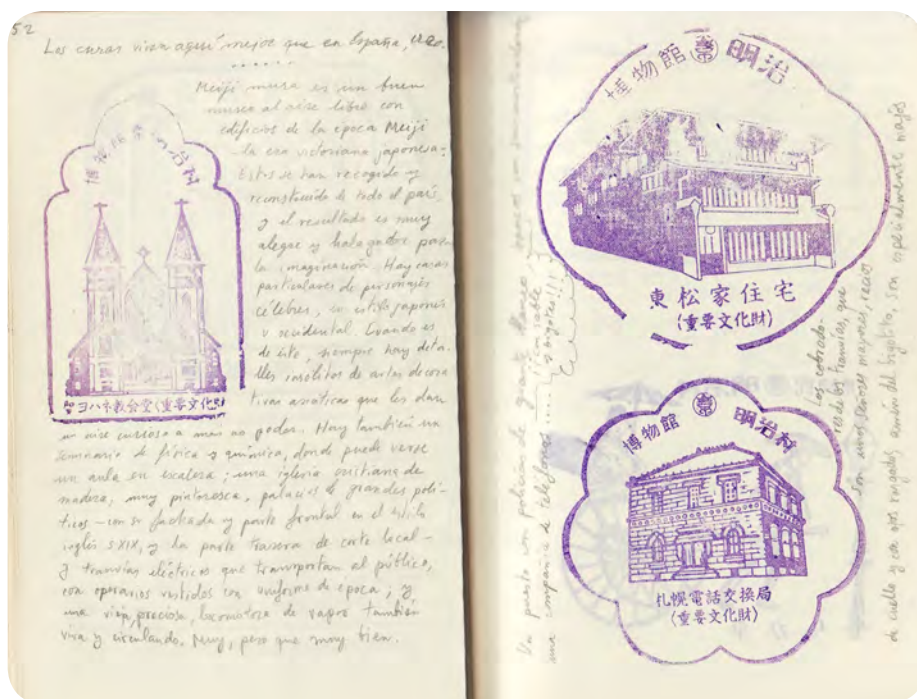 52
Los curas viven aquí mejor que en España, creo.
Meiji mura es un buen
museo al aire libre con
edificios de la época Meiji
-la era victoriana japonesa-.
Estos se han recogido y
reconstruido de todo el país,
y el resultado es muy
alegre y halagador para
la imaginación. Hay casas
particulares de personajes
célebres, en estilo japonés
u occidental. Cuando es
de éste, siempre hay deta-
lles insólitos de artes decora
tivas asiáticas que les dan
un aire curioso a más no poder. Hay también un
seminario de física y química, donde puede verse
un aula en escalera; una iglesia cristiana de
madera, muy pintoresca, palacios de grandes polí-
ticos -con su fachada y parte frontal en el estilo
inglés S XIX, y la parte trasera de corte local-
y tranvías eléctricos que transportan al público,
con operarios vestidos con uniforme de época; y
una vieja, preciosa, locomotora de vapor también
viva y circulando. Muy, pero que muy bien.
博物館 明治村
聖ヨハネ教会堂(重要文化財)
Un puesto con policías de guante blanco
una compañía de teléfonos
博物館 明治
東松家住宅
(重要文化財)
博物館 明治村
札幌電話交換局
(重要文化財)
Los cobrado-
res de los tranvías, que
son unos señores mayores, recios
de cuello y con ojos rasgados, amén del bigotito, son especialmente majos